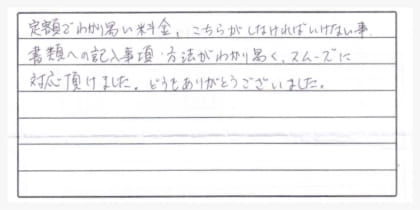 定額でわかり易い料金、こちらがしなければいけない事、
書類への記入事項・方法がわかり易く、スムーズに
対応頂けました。どうもありがとうございました。